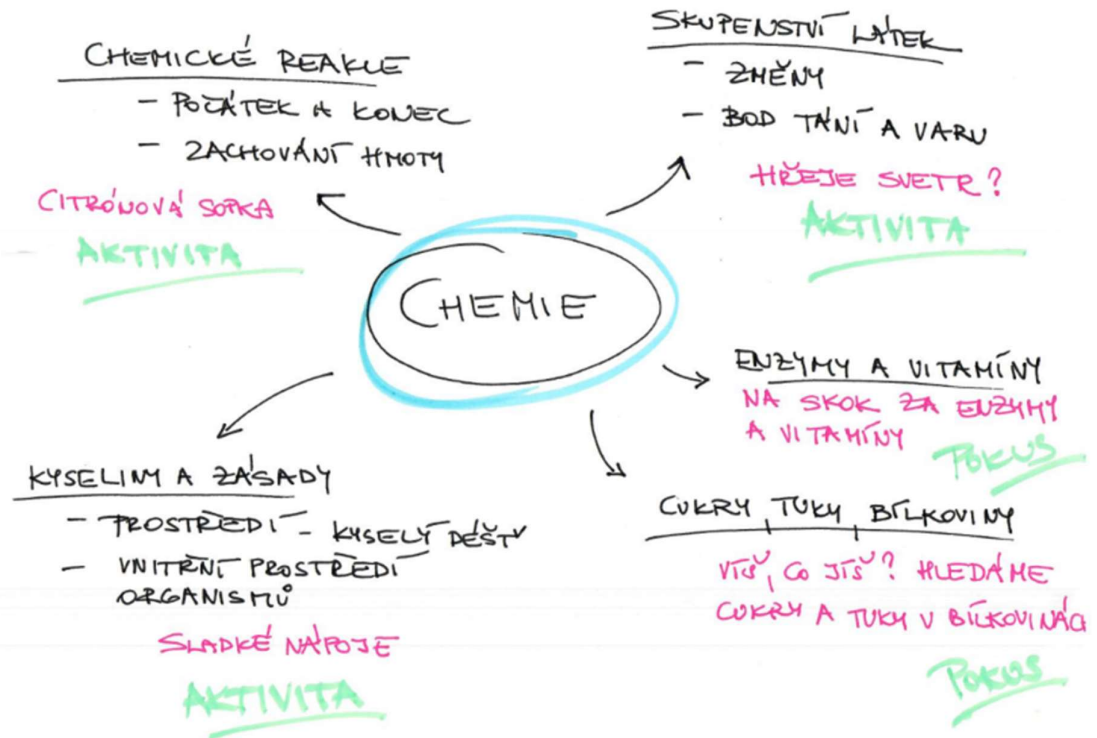 CHEMICKÉ REAKCE
- POČÁTEK A KONEC
- ZACHOVÁNÍ HMOTY
CITRÓNOVÁ SOPKA
AKTIVITA
SKUPENSTVÍ LÁTEK
- ZMĚNY
- BOD TÁNÍ A VARU
HŘEJE SVETR?
AKTIVITA
CHEMIE
ENZYMY A VITAMÍNY
NA SKOK ZA ENZYMY
A VITAMÍNY
POKUS
KYSELINY A ZÁSADY
- PROSTŘEDÍ - KYSELÝ DÉŠŤ
- VNITŘNÍ PROSTŘEDÍ
ORGANISMŮ
SLADKÉ NÁPOJE
AKTIVITA
CUKRY, TUKY, BÍLKOVINY
VÍŠ, CO JÍŠ? HLEDÁME
CUKRY A TUKY V BÍLKOVINÁCH
POKUS